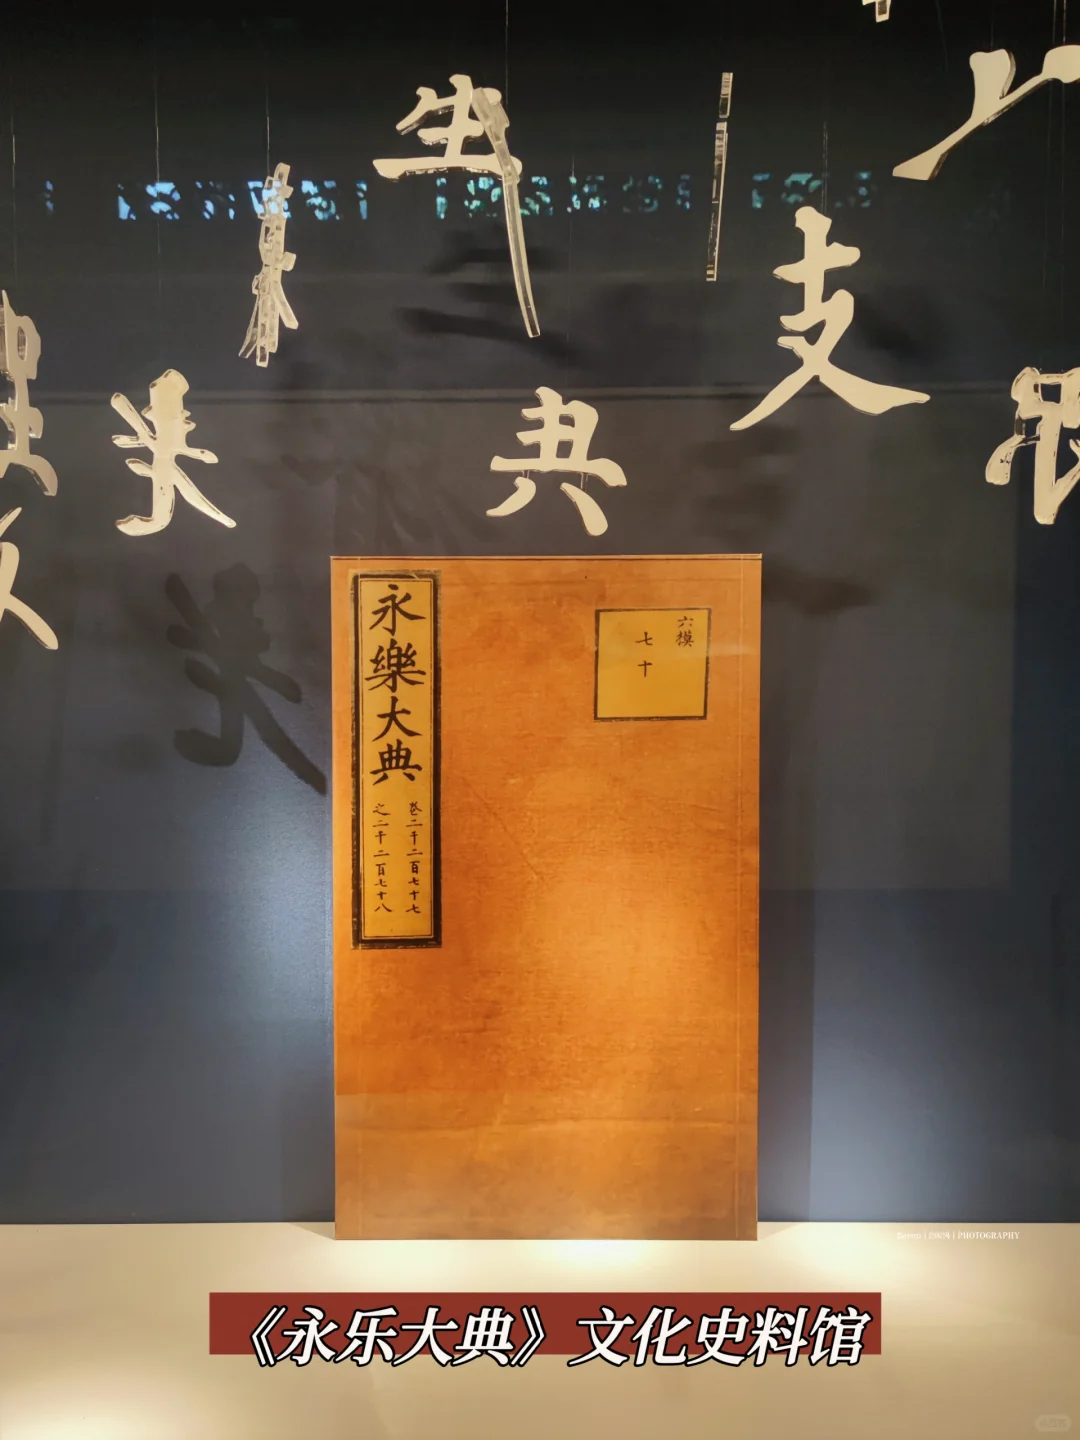 生
支
典
永樂大典
卷二千二百七十七
之二千二百七十八
六模
七十
2024 | PHOTOGRAPHY
《永乐大典》文化史料馆